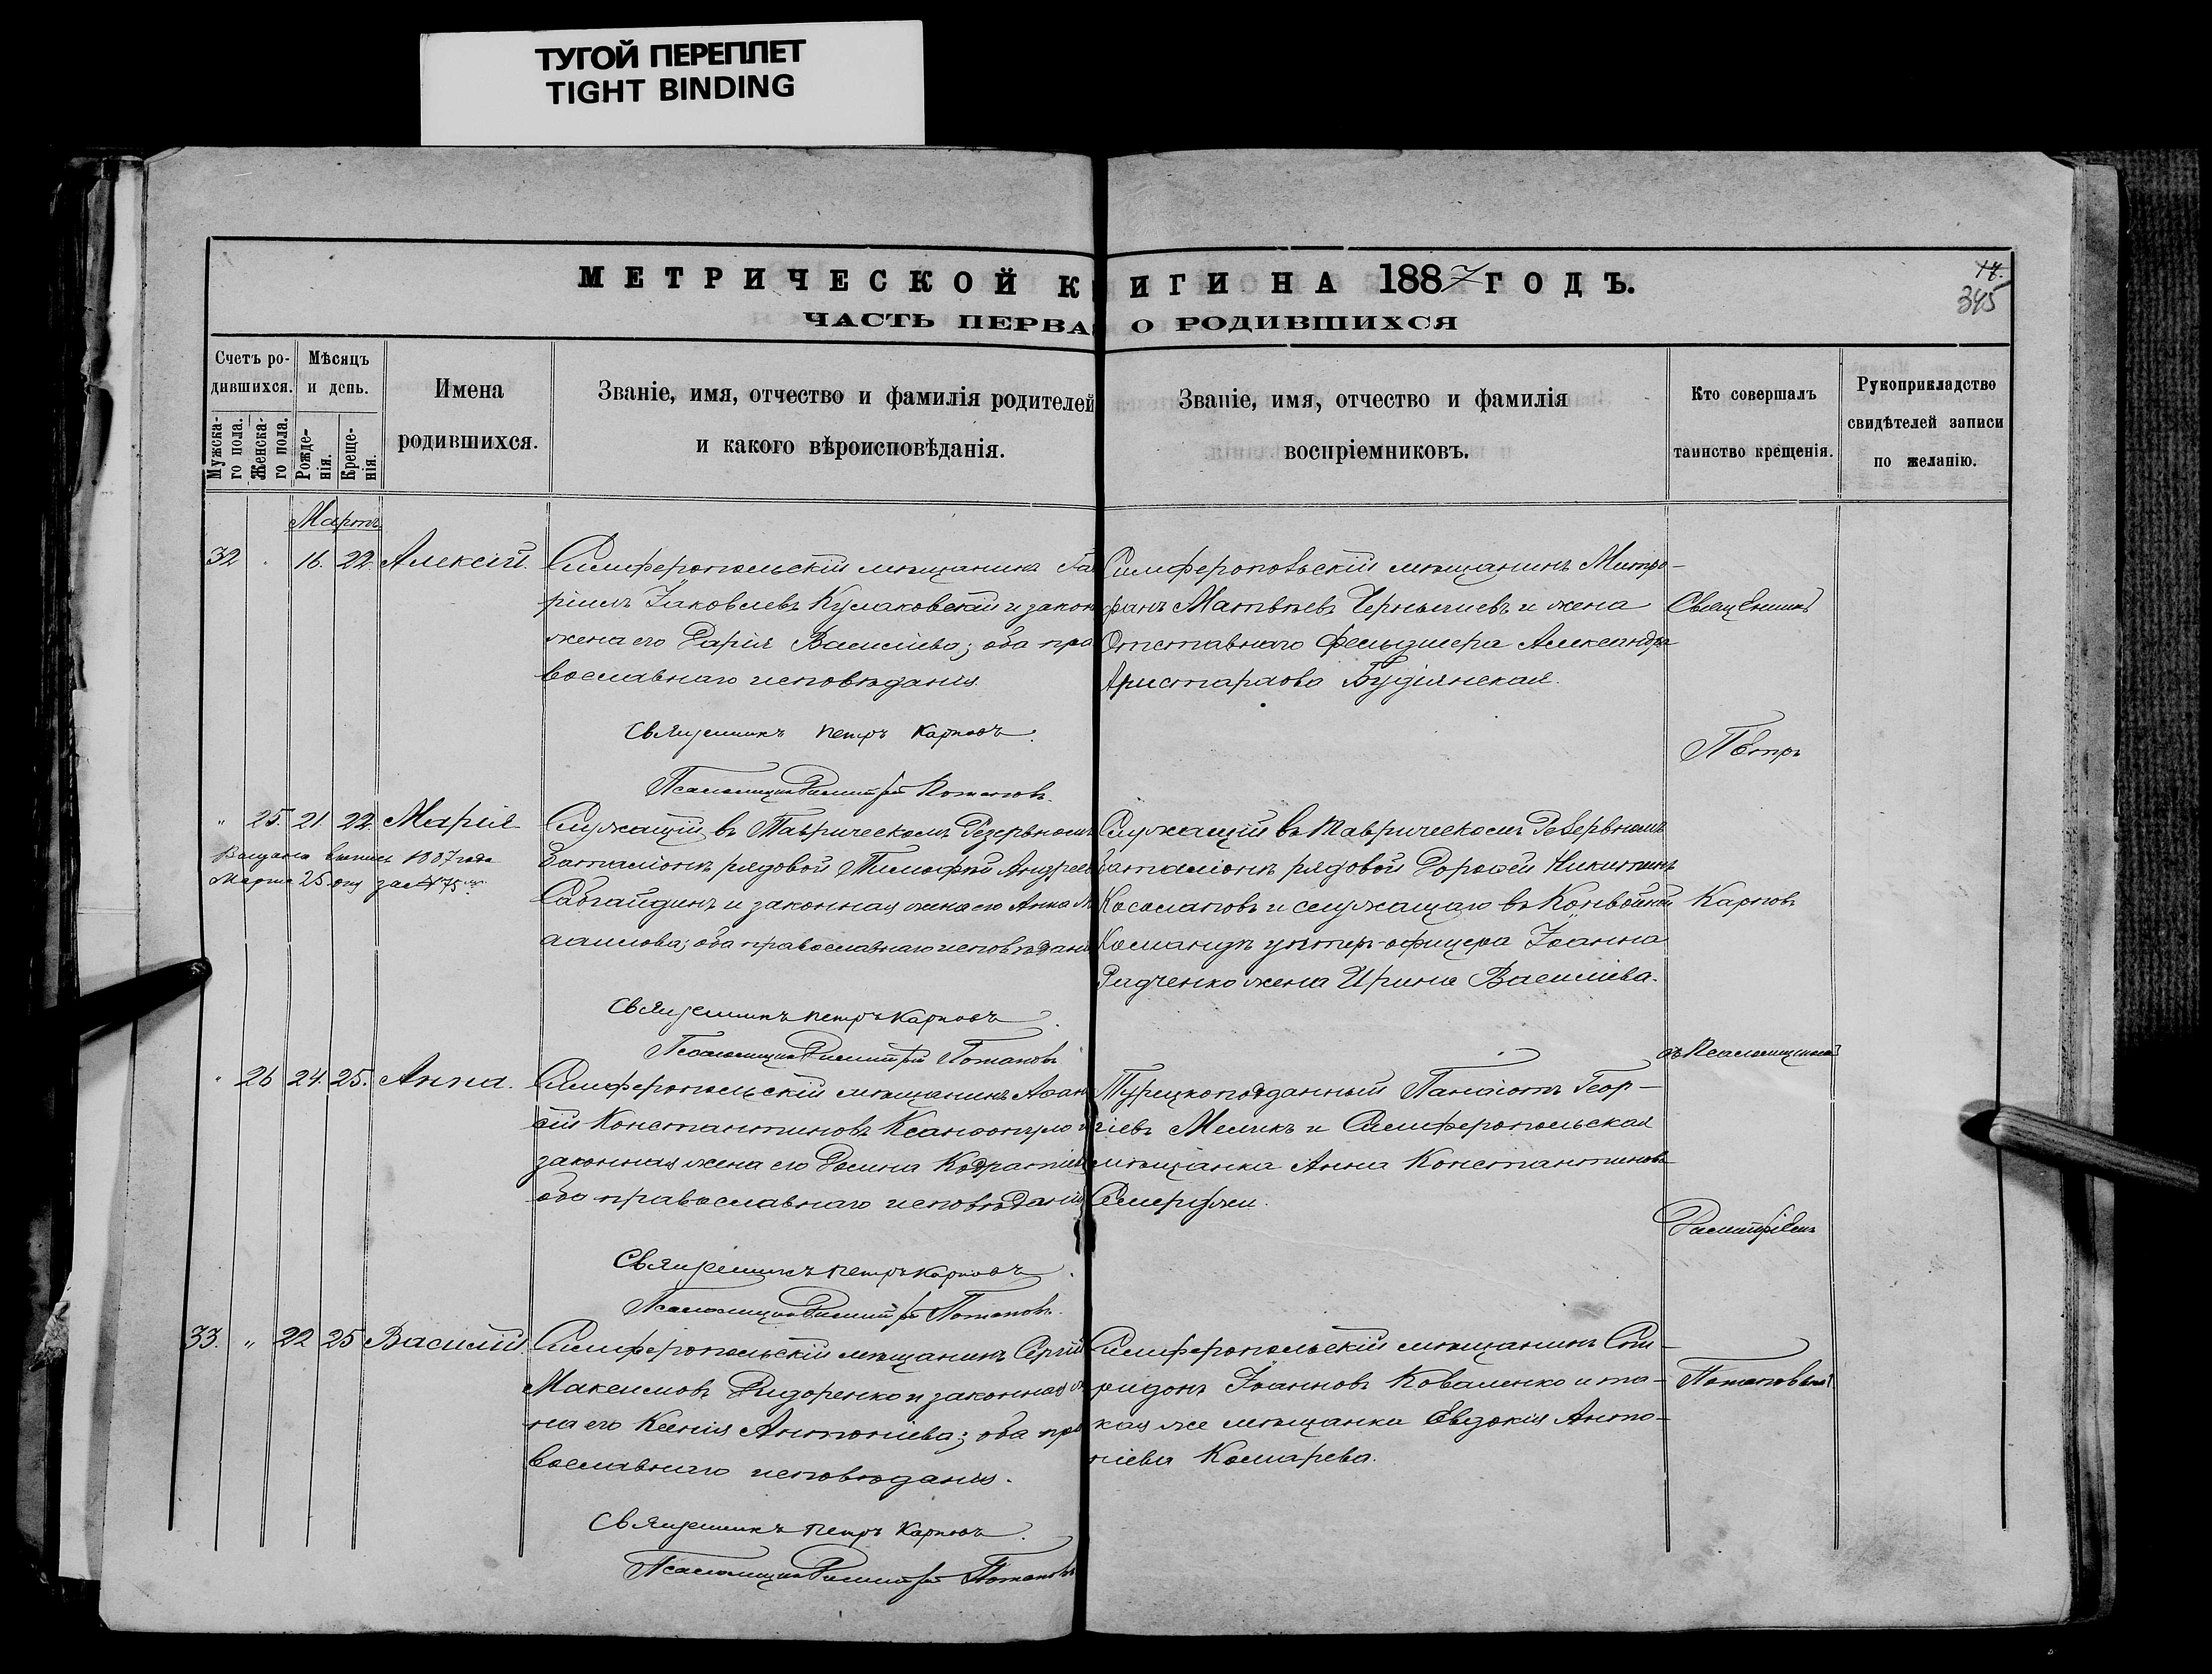 ТУГОЙ ПЕРЕПЛЕТ
TIGHT BINDING
МЕТРИЧЕСКОЙ К ИГИ НА 1887 ГОДЪ.
345
ЧАСТЬ ПЕРВА О РОДИВШИХСЯ
Счетъ ро-
дившихся.
Мужска-
го пола.
Женска-
го пола.
Мѣсяцъ
и день.
Рожде-
нія.
Креще-
нія.
Имена
родившихся.
Званіе, имя, отчество и фамилія родителей
и какого вѣроисповѣданія.
Званіе, имя, отчество и фамилія
воспріемниковъ.
Кто совершалъ
таинство крещенія.
Рукоприкладство
свидѣтелей записи
по желанію.
Мартъ
32 16. 22. Алексій.
Симферопольскій мѣщанинъ Га
ріилъ Іаковлевъ Кулаковскій и закон
жена его Дарія Василіева; оба пра
вославнаго исповѣданія.
Священникъ Петръ Карповъ.
Псаломщикъ Димитрій Потаповъ.
Симферопольскій мѣщанинъ Митро-
фанъ Матвѣевъ Чернышевъ и жена
Отставнаго Фельдшера Александра
Аристархова Будіянская.
Священникъ
Петръ
Карповъ
съ Псаломщикомъ
Димитріемъ
Потаповымъ
" 25. 21. 22. Марія
Выдана выпись 1887 года
Марта 25 дня за № 75
Служащій въ Таврическомъ Резервномъ
баталіонѣ рядовой Тимофей Андреев
и законная жена его Анна
оба православнаго исповѣдані
Священникъ Петръ Карповъ
Псаломщикъ Димитрій Потаповъ
Служащій въ Таврическомъ Резервномъ
баталіонѣ рядовой Дороѳей Никитинъ
Косолаповъ и служащаго въ Конвойной
Командѣ унтер-офицера Іоанна
Радченко жена Ирина Василіева.
" 26 24. 25. Анна.
Симферопольскій мѣщанинъ Аѳана
сій Константиновъ Ксанѳопуло и
законная жена его Домна Кодратіев
оба православнаго исповѣданія
Священникъ Петръ Карповъ.
Псаломщикъ Димитрій Потаповъ.
Турецкоподданный Панаіотъ Геор-
гіевъ Меликъ и Симферопольская
мѣщанка Анна Константинова
33. " 22 25 Василій
Симферопольскій мѣщанинъ Сергій
Максимовъ Сидоренко и законная ж
на его Ксенія Антоніева; оба пра
вославнаго исповѣданія.
Священникъ Петръ Карповъ.
Псаломщикъ Димитрій Потаповъ
Симферопольскій мѣщанинъ Спи-
ридонъ Іоанновъ Коваленко и та-
кая же мѣщанка Евдокія Анто-
ніева Комарева.